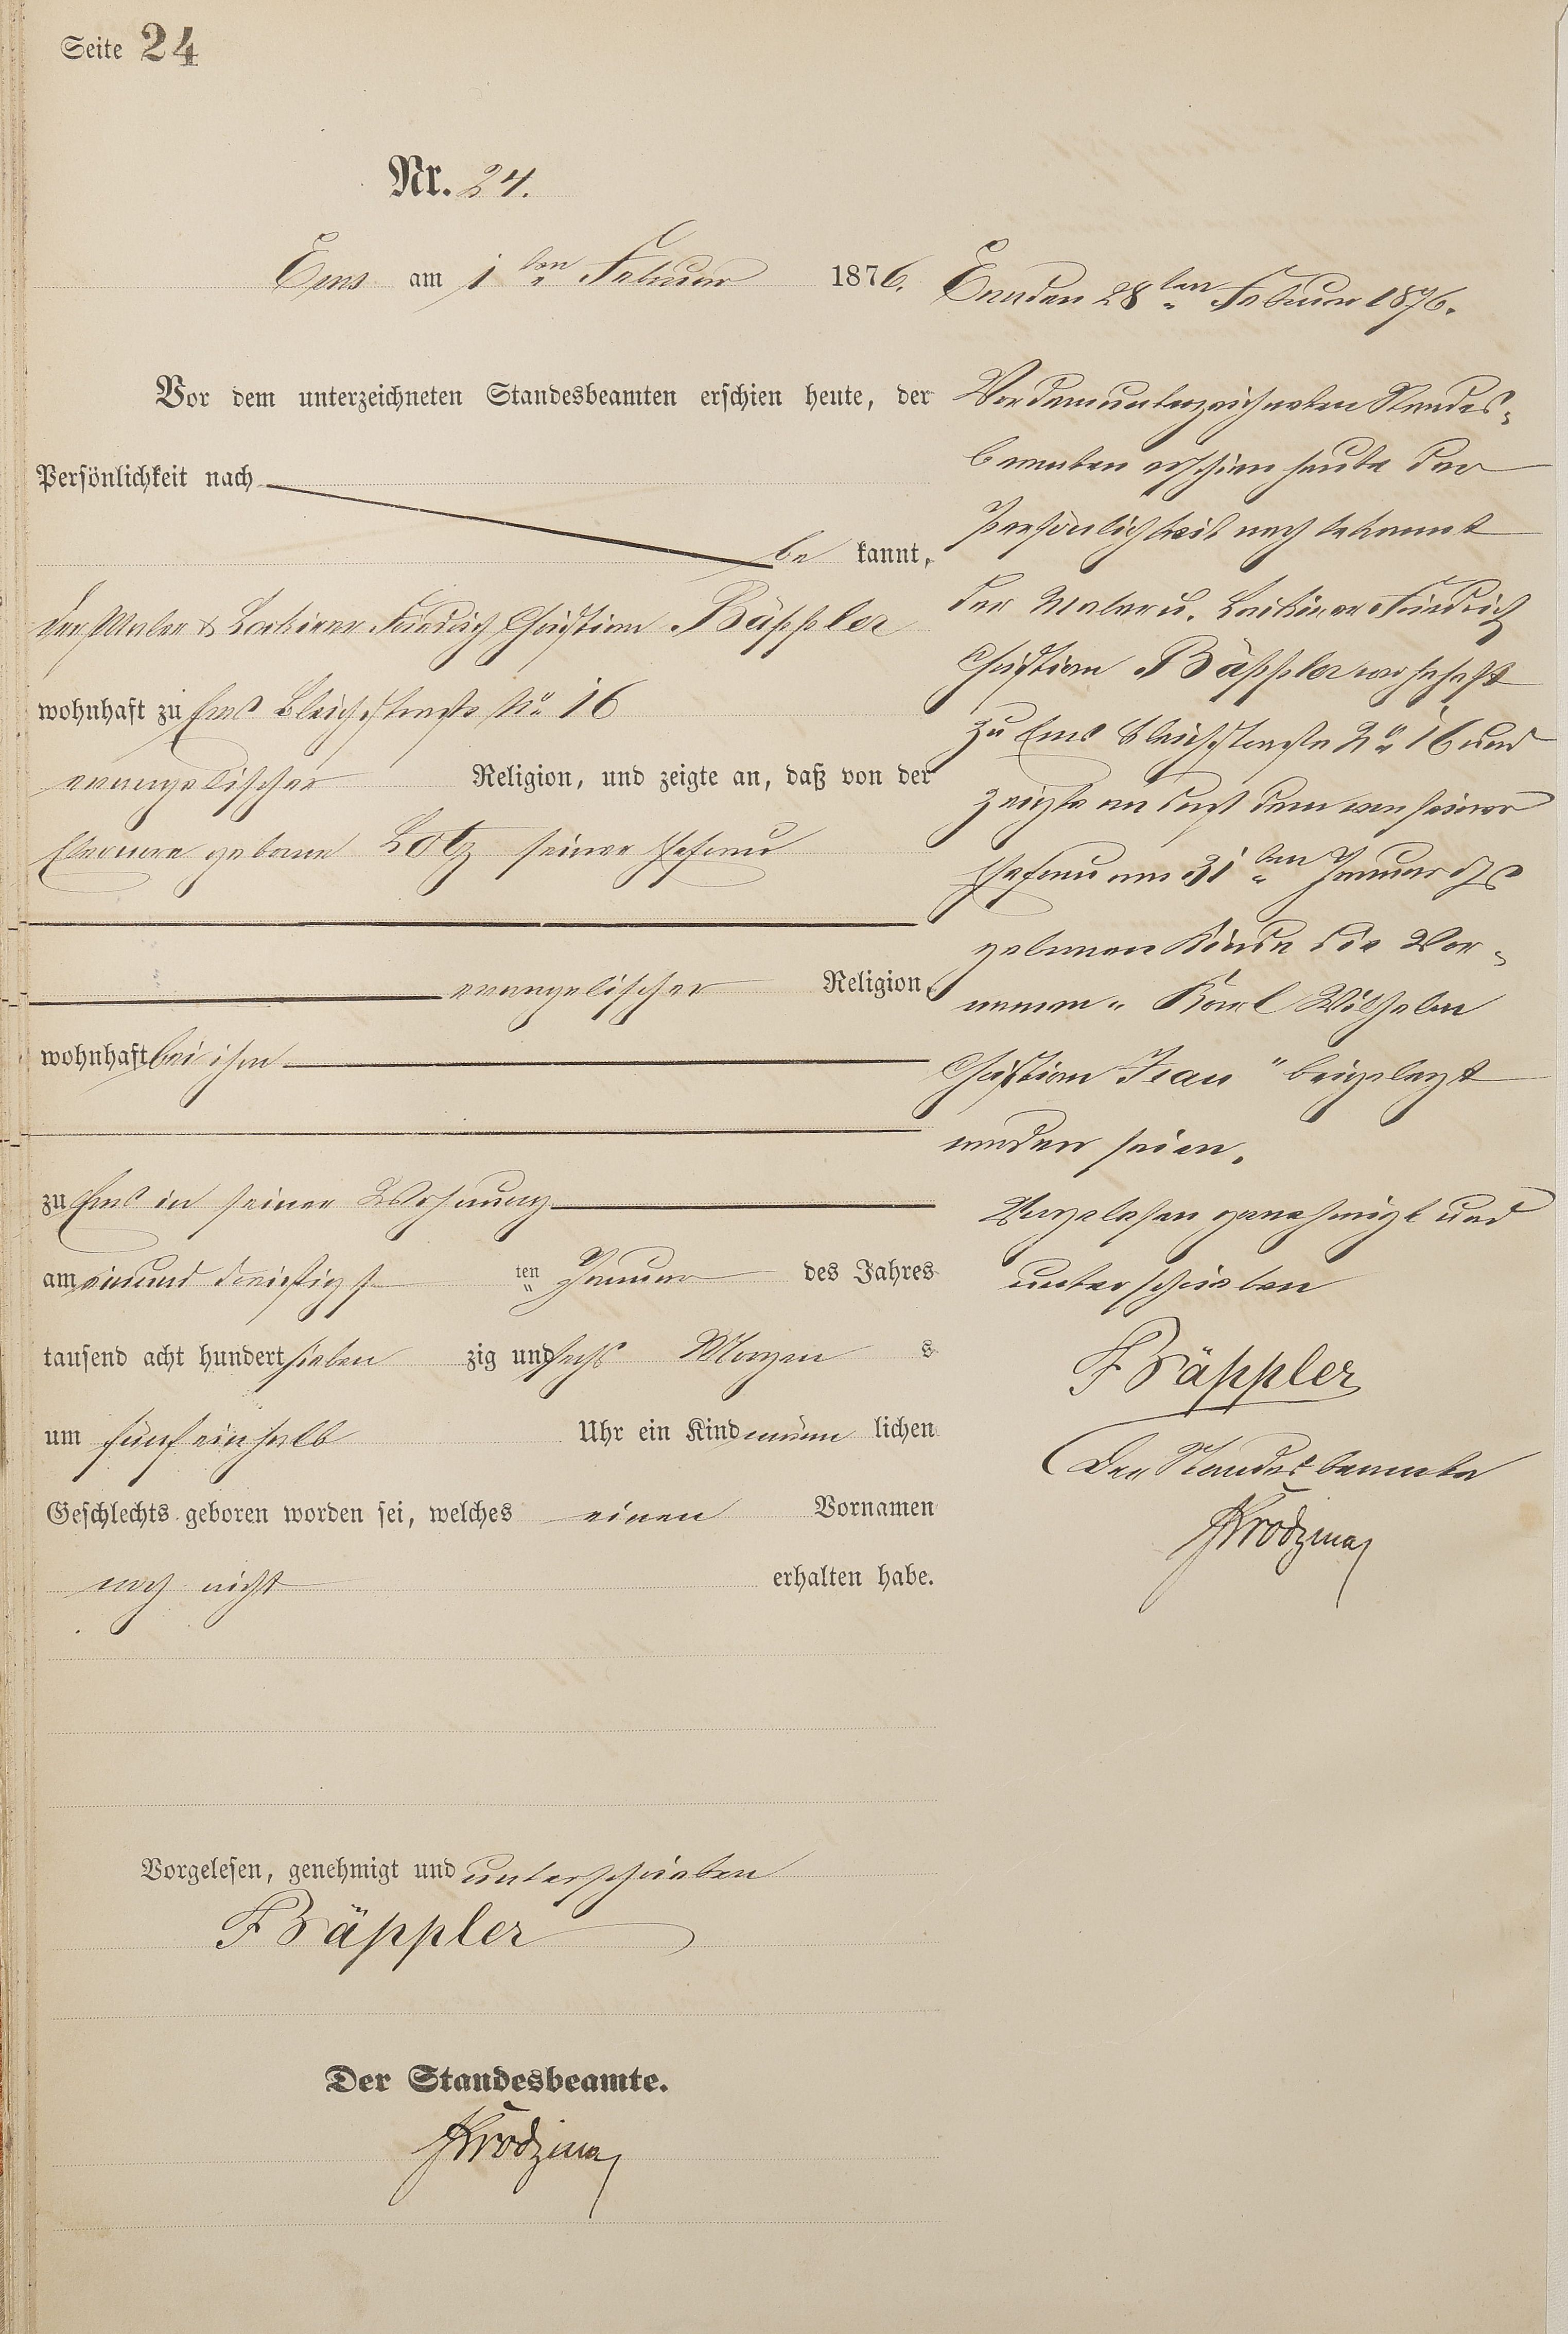 Seite 24
Nr. 24.
Ems am 1ten Februar 1876.
Vor dem unterzeichneten Standesbeamten erschien heute, der
Persönlichkeit nach
be kannt,
der Maler & Lackirer Friedrich Christian Bäppler
wohnhaft zu Ems Bleichstraße No 16
evangelischer Religion, und zeigte an, daß von der
Eleonore geborne Lotz seiner Ehefrau
evangelischer Religion
wohnhaft bei ihm
zu Ems in seiner Wohnung
am einund dreißigst ten Januar des Jahres
tausend acht hundert sieben zig und sechs Morgen s
um fünf einhalb Uhr ein Kind männ lichen
Geschlechts geboren worden sei, welches einen Vornamen
noch nicht erhalten habe.
Vorgelesen, genehmigt und unterschrieben
F Bäppler
Der Standesbeamte.
Ems den 28ten Februar 1876.
Vor dem unterzeichneten Standes-
beamten erschien heute der
Persönlichkeit nach bekannt
der Maler u. Lackirer Friedrich
Christian Bäppler wohnhaft
zu Ems Bleichstraße No 16 und
zeigte an daß dem von seiner
Ehefrau am 31ten Januar d Js
gebornen Kinde die Vor-
namen „Karl Wilhelm
Christian Jean" beigelegt
worden seien.
Vorgelesen genehmigt und
unterschrieben
F Bäppler
Der Standesbeamte